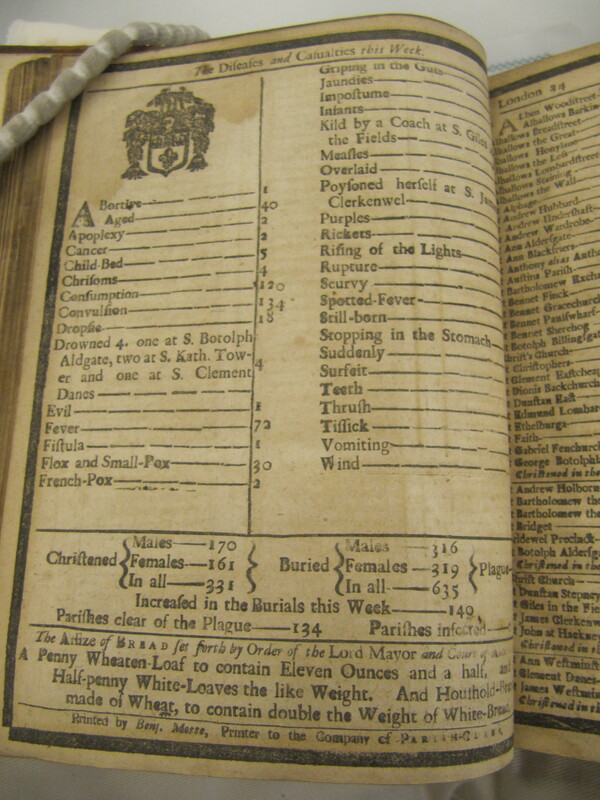 The Diseases and Casualties this Week.
ABortive 1
Aged 40
Apoplexy 2
Cancer 2
Child-Bed 5
Chrisoms 4
Consumption 120
Convulsion 134
Dropsie 18
Drowned 4. one at S. Botolph
Aldgate, two at S. Kath. Tow-
er and one at S. Clement 4
Danes
Evil 1
Fever 72
Fistula 1
Flox and Small-Pox 30
French-Pox 2
Griping in the Guts
Jaundies
Impostume
Infants
Kild by a Coach at S. Giles
the Fields
Measles
Overlaid
Poysoned herself at S. Jam
Clerkenwel
Purples
Rickets
Rising of the Lights
Rupture
Scurvy
Spotted-Fever
Still-born
Stopping in the Stomach
Suddenly
Surfeit
Teeth
Thrush
Tissick
Vomiting
Wind
Christened Males 170
Females 161
In all 331
Buried Males 316
Females 319
In all 635
Plague
Increased in the Burials this Week 140
Parishes clear of the Plague 134 Parishes infected
The Assize of BREAD set forth by Order of the Lord Mayor and Court of
A Penny Wheaten-Loaf to contain Eleven Ounces and a half, and
Half-penny White-Loaves the like Weight. And Houshold-
made of Wheat, to contain double the Weight of White-Bread
Printed by Benj. Motte, Printer to the Company of PARISH-CLERKS
London 24
Alban Woodstreet
Alhallows Barkin
Alhallows Breadstreet
Alhallows the Great
Alhallows Honylane
Alhallows the Less
Alhallows Lombardstreet
Alhallows Staining
Alhallows the Wall
Alphage
Andrew Hubbard
Andrew Undershaft
Andrew Wardrobe
Ann Aldersgate
Ann Blackfriers
Anthony alias Antho
Austins Parish
Bartholomew Exch
Bennet Finck
Bennet Gracechurch
Bennet Paulswharf
Bennet Sherehog
Botolph Billingsgat
Christ's Church
Christophers
Clement Eastcheap
Dionis Backchurch
Dunstan East
Edmund Lombar
Ethelburga
Faith
Gabriel Fenchurch
George Botolphl
Christened in the
Andrew Holborn
Bartholomew the
Bartholomew the
Bridget
Bridewel Precinct
Botolph Aldersga
Christened in the
Christ Church
Dunstan Stepney
Giles in the Fiel
James Clerkenw
John at Hackney
Christened in t
Ann Westminst
Clement Danes
James Westmin
Christened in t